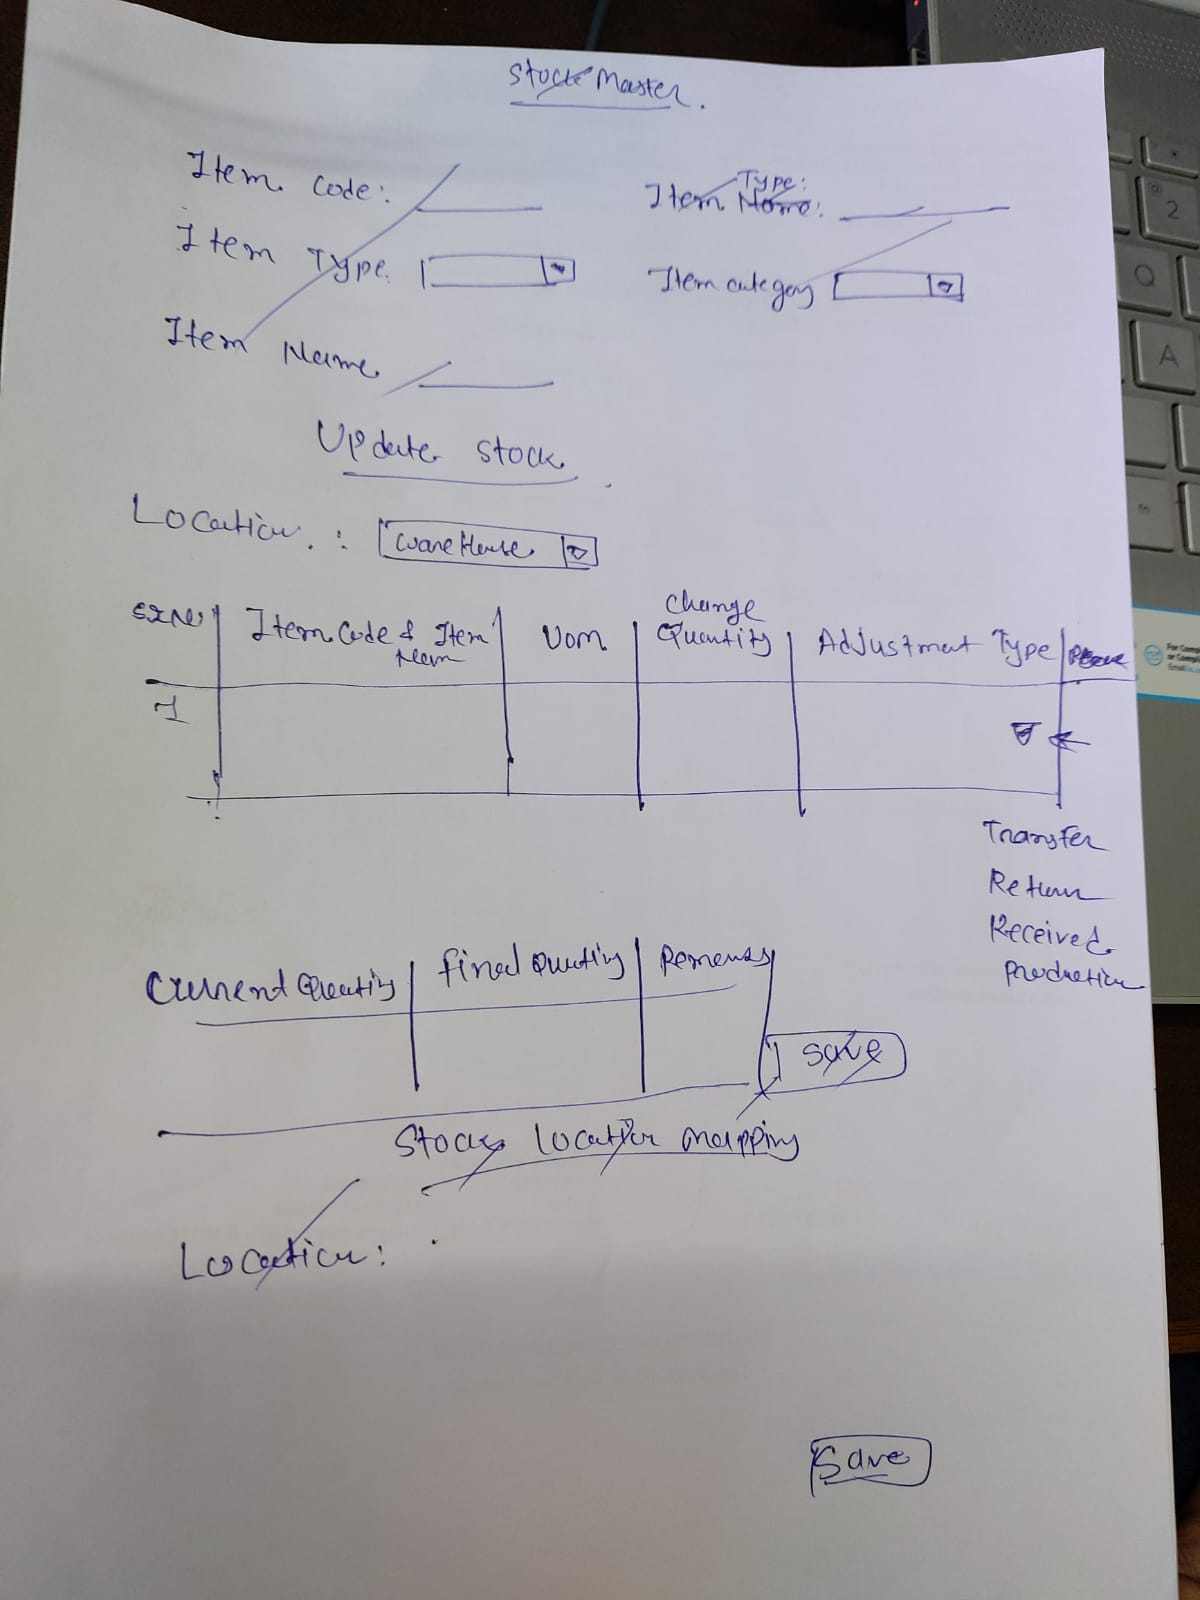 Stock Master.
Item Code:
Item Type:
Item Name:
Item Type
Item category
Item Name
Update Stock
Location : Ware House
Sr No Item Code & Item Name UOM Change Quantity Adjustment Type
1
Transfer
Return
Received
Production
Current Quantity Final Quantity Remarks
Save
Stock Location Mapping
Location :
Save
2
Q
A